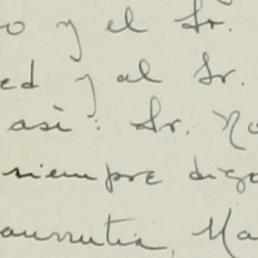 o y el Sr.
ed y al Sr.
así: Sr. No
siempre digo
aurrutia, Ma